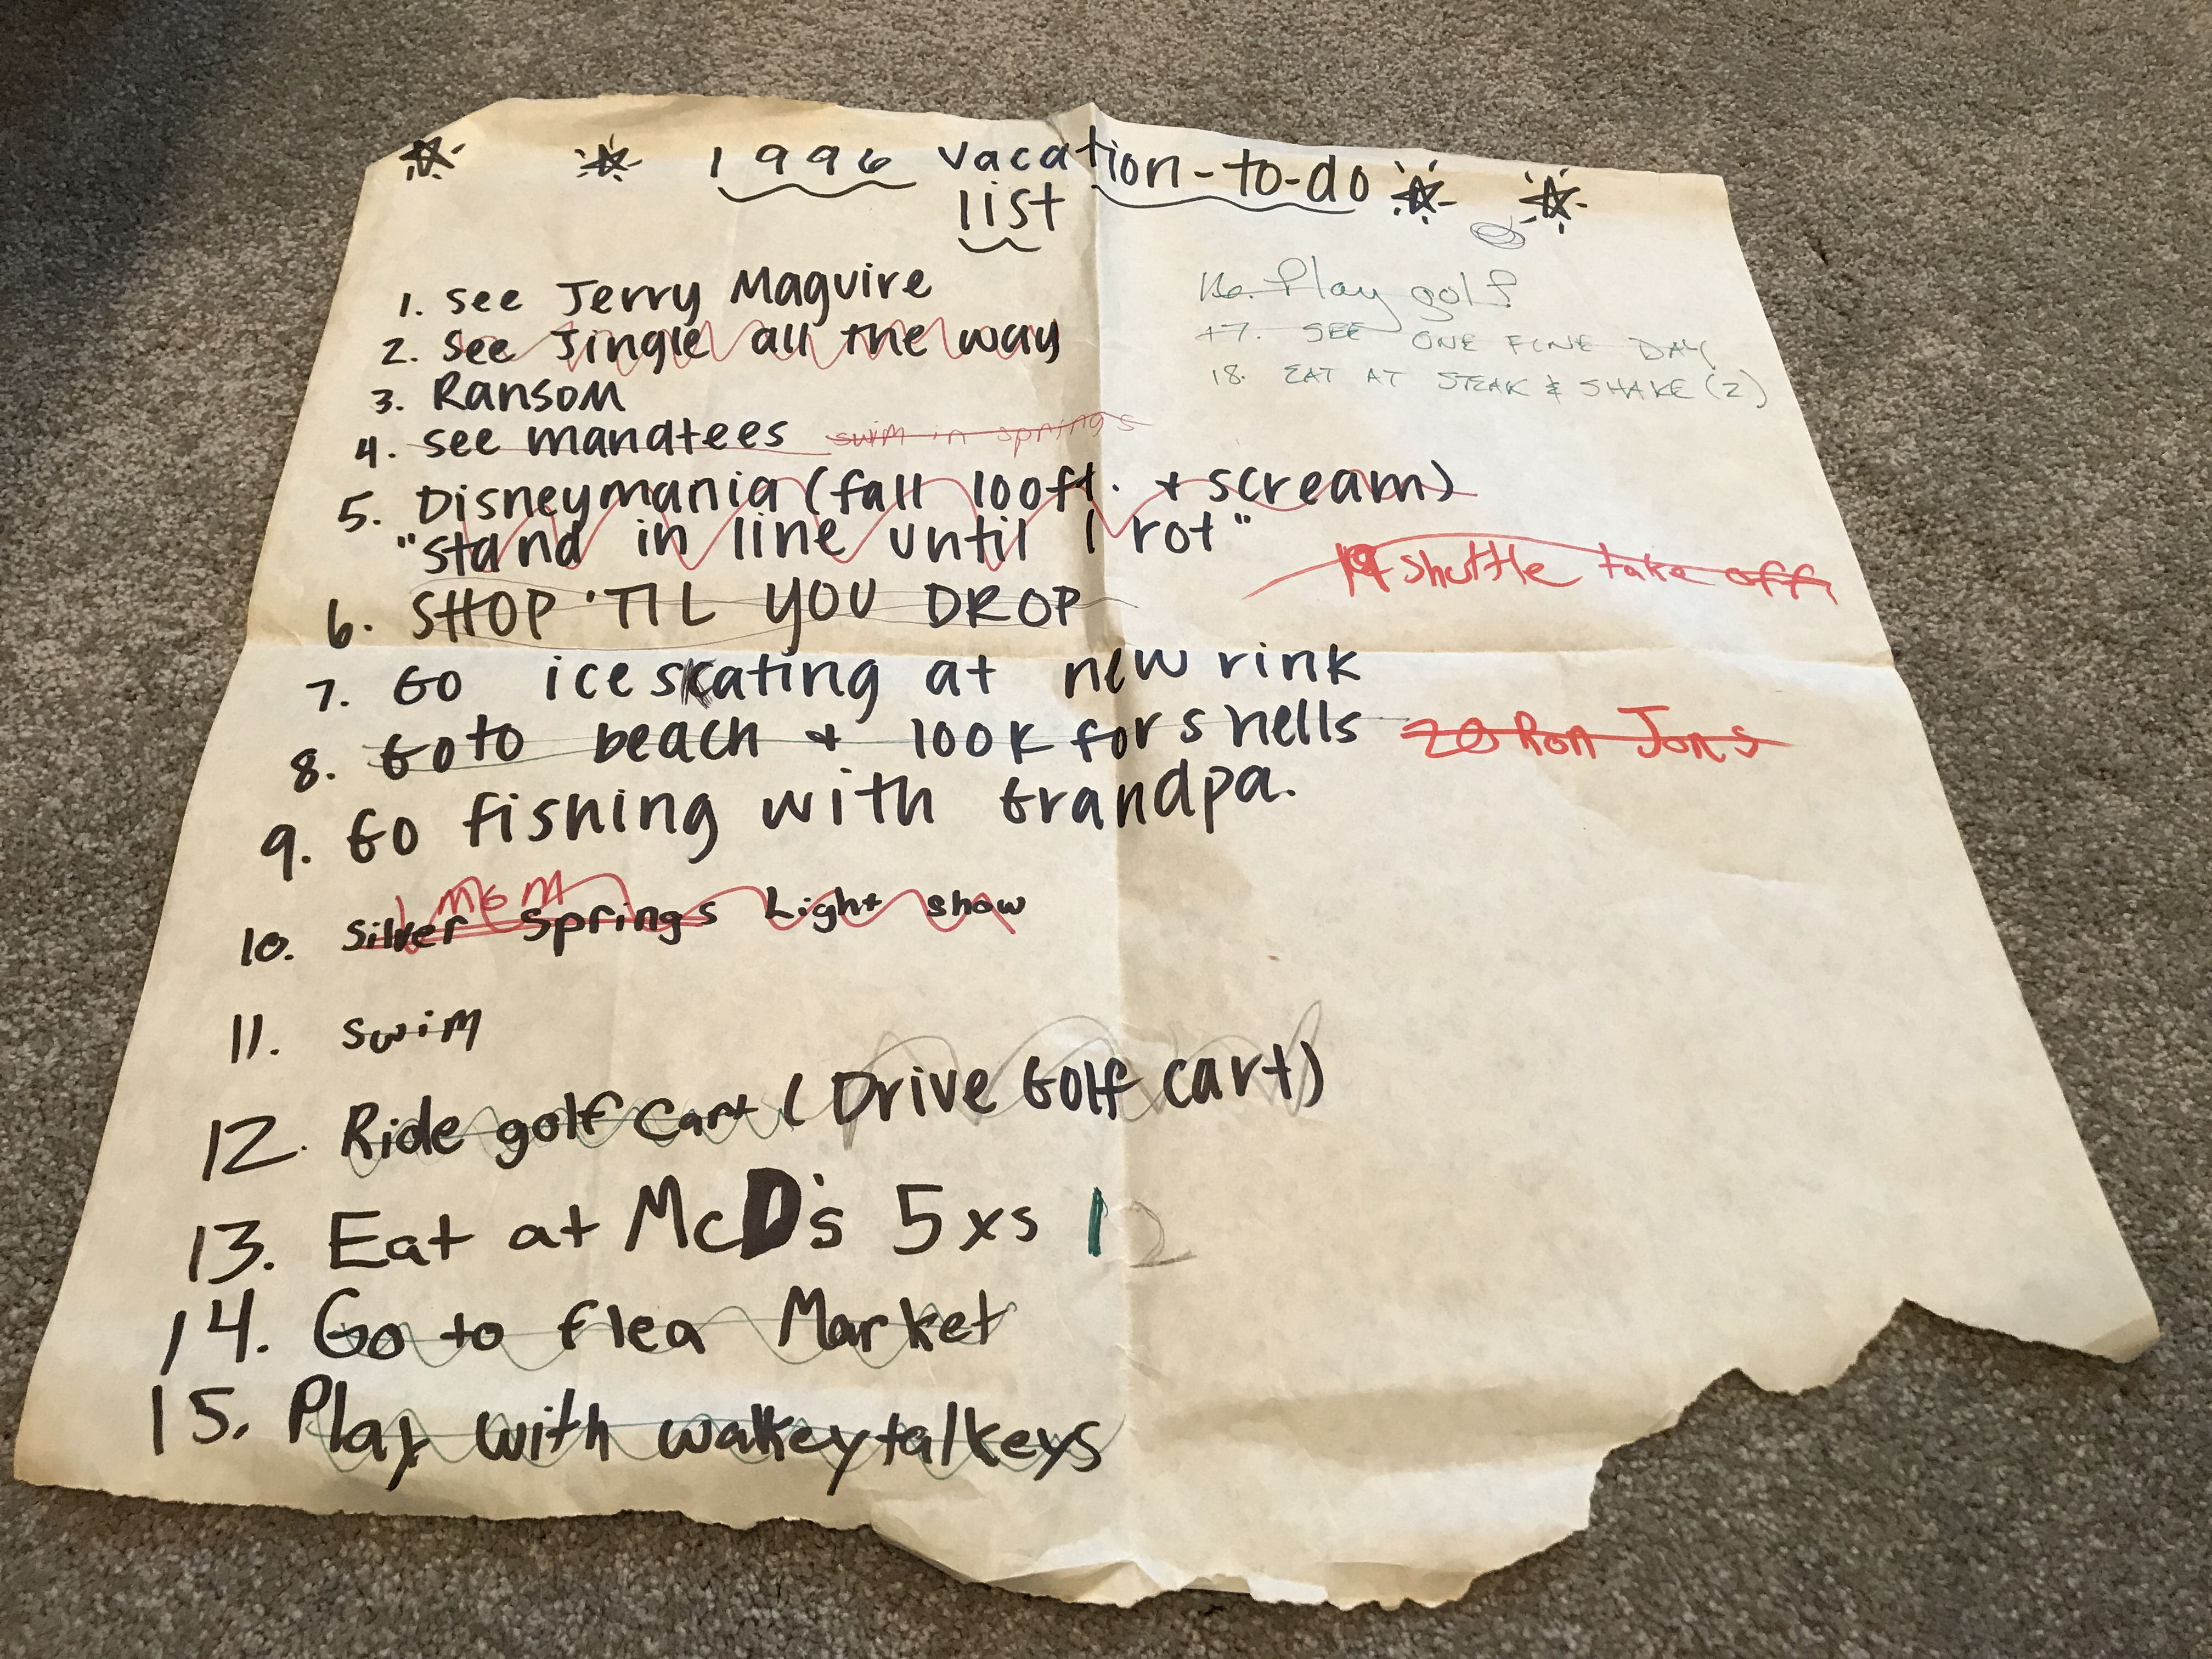 1996 vacation-to-do
list
1. see Jerry Maguire
2. see Jingle all the way
3. Ransom
4. see manatees swim in springs
5. Disneymania (fall 100ft. + scream)
"stand in line until I rot"
6. SHOP 'TIL YOU DROP
7. Go ice skating at new rink
8. Go to beach + look for shells
9. Go fishing with Grandpa.
MGM
10. Silver Springs Light show
11. swim
12. Ride golf cart (Drive Golf cart)
13. Eat at McD's 5xs 1 2
14. Go to flea Market
15. Play with walkeytalkeys
16. Play golf
17. SEE ONE FINE DAY
18. EAT AT STEAK & SHAKE (2)
19 Shuttle take off
20 Ron Jons